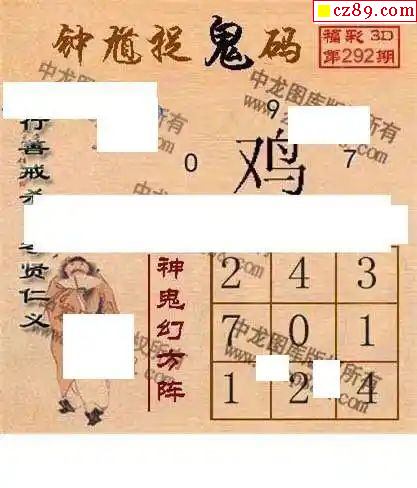 cz89.com
钟馗捉鬼码
福彩3D
第292期
9
0 鸡 7
行善戒杀
贤仁义
神鬼幻方阵
2 4 3
7 0 1
1 2 4
中龙图库版权所有